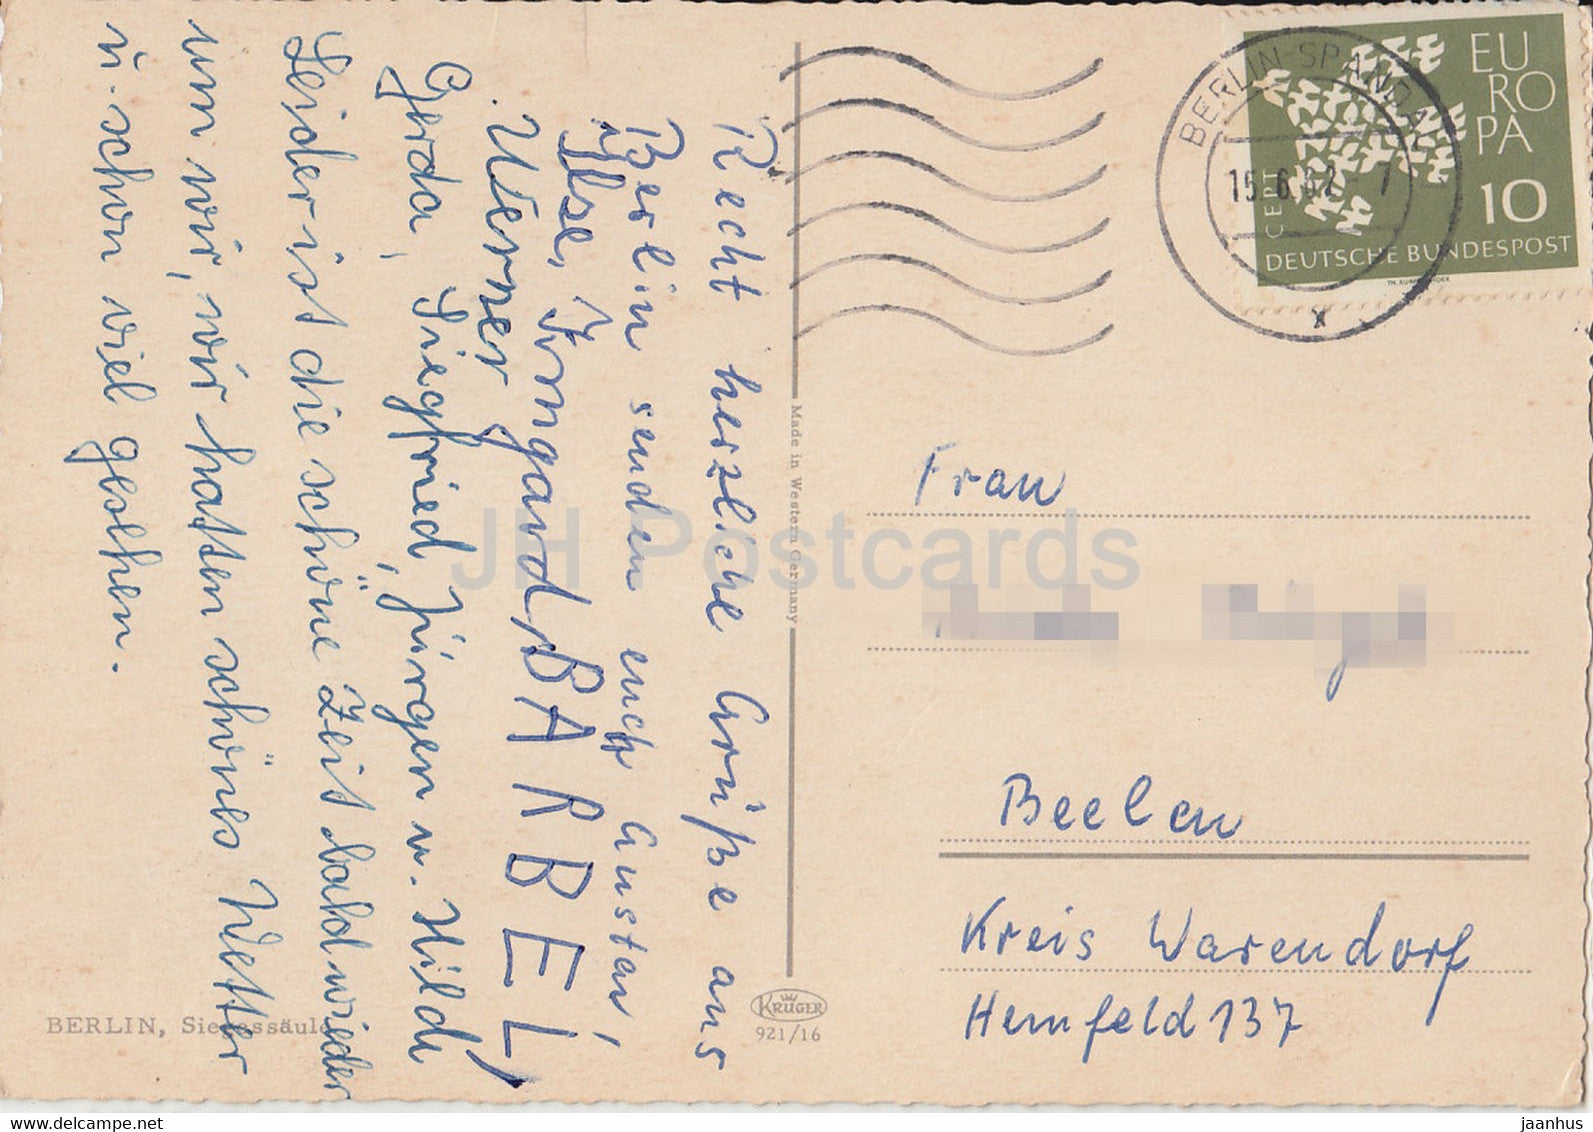 Recht herzliche Grüße aus
Berlin senden euch Gustav,
Ilse, Irmgard, BARBEL,
Werner
Gerda, Siegfried, Jürgen u. Hilde
Leider ist die schöne Zeit bald wieder
um wir, wir hatten schönes Wetter
u. schon viel gesehen.
Made in Western Germany
BERLIN, Siegessäule
KRÜGER
921/16
BERLIN SPANDAU
15.6.62 - 7
x
EU
RO
PA
10
CEPT
DEUTSCHE BUNDESPOST
Frau
Beelen
Kreis Warendorf
Hemfeld 137
JH Postcards
www.delcampe.net
jaanhus